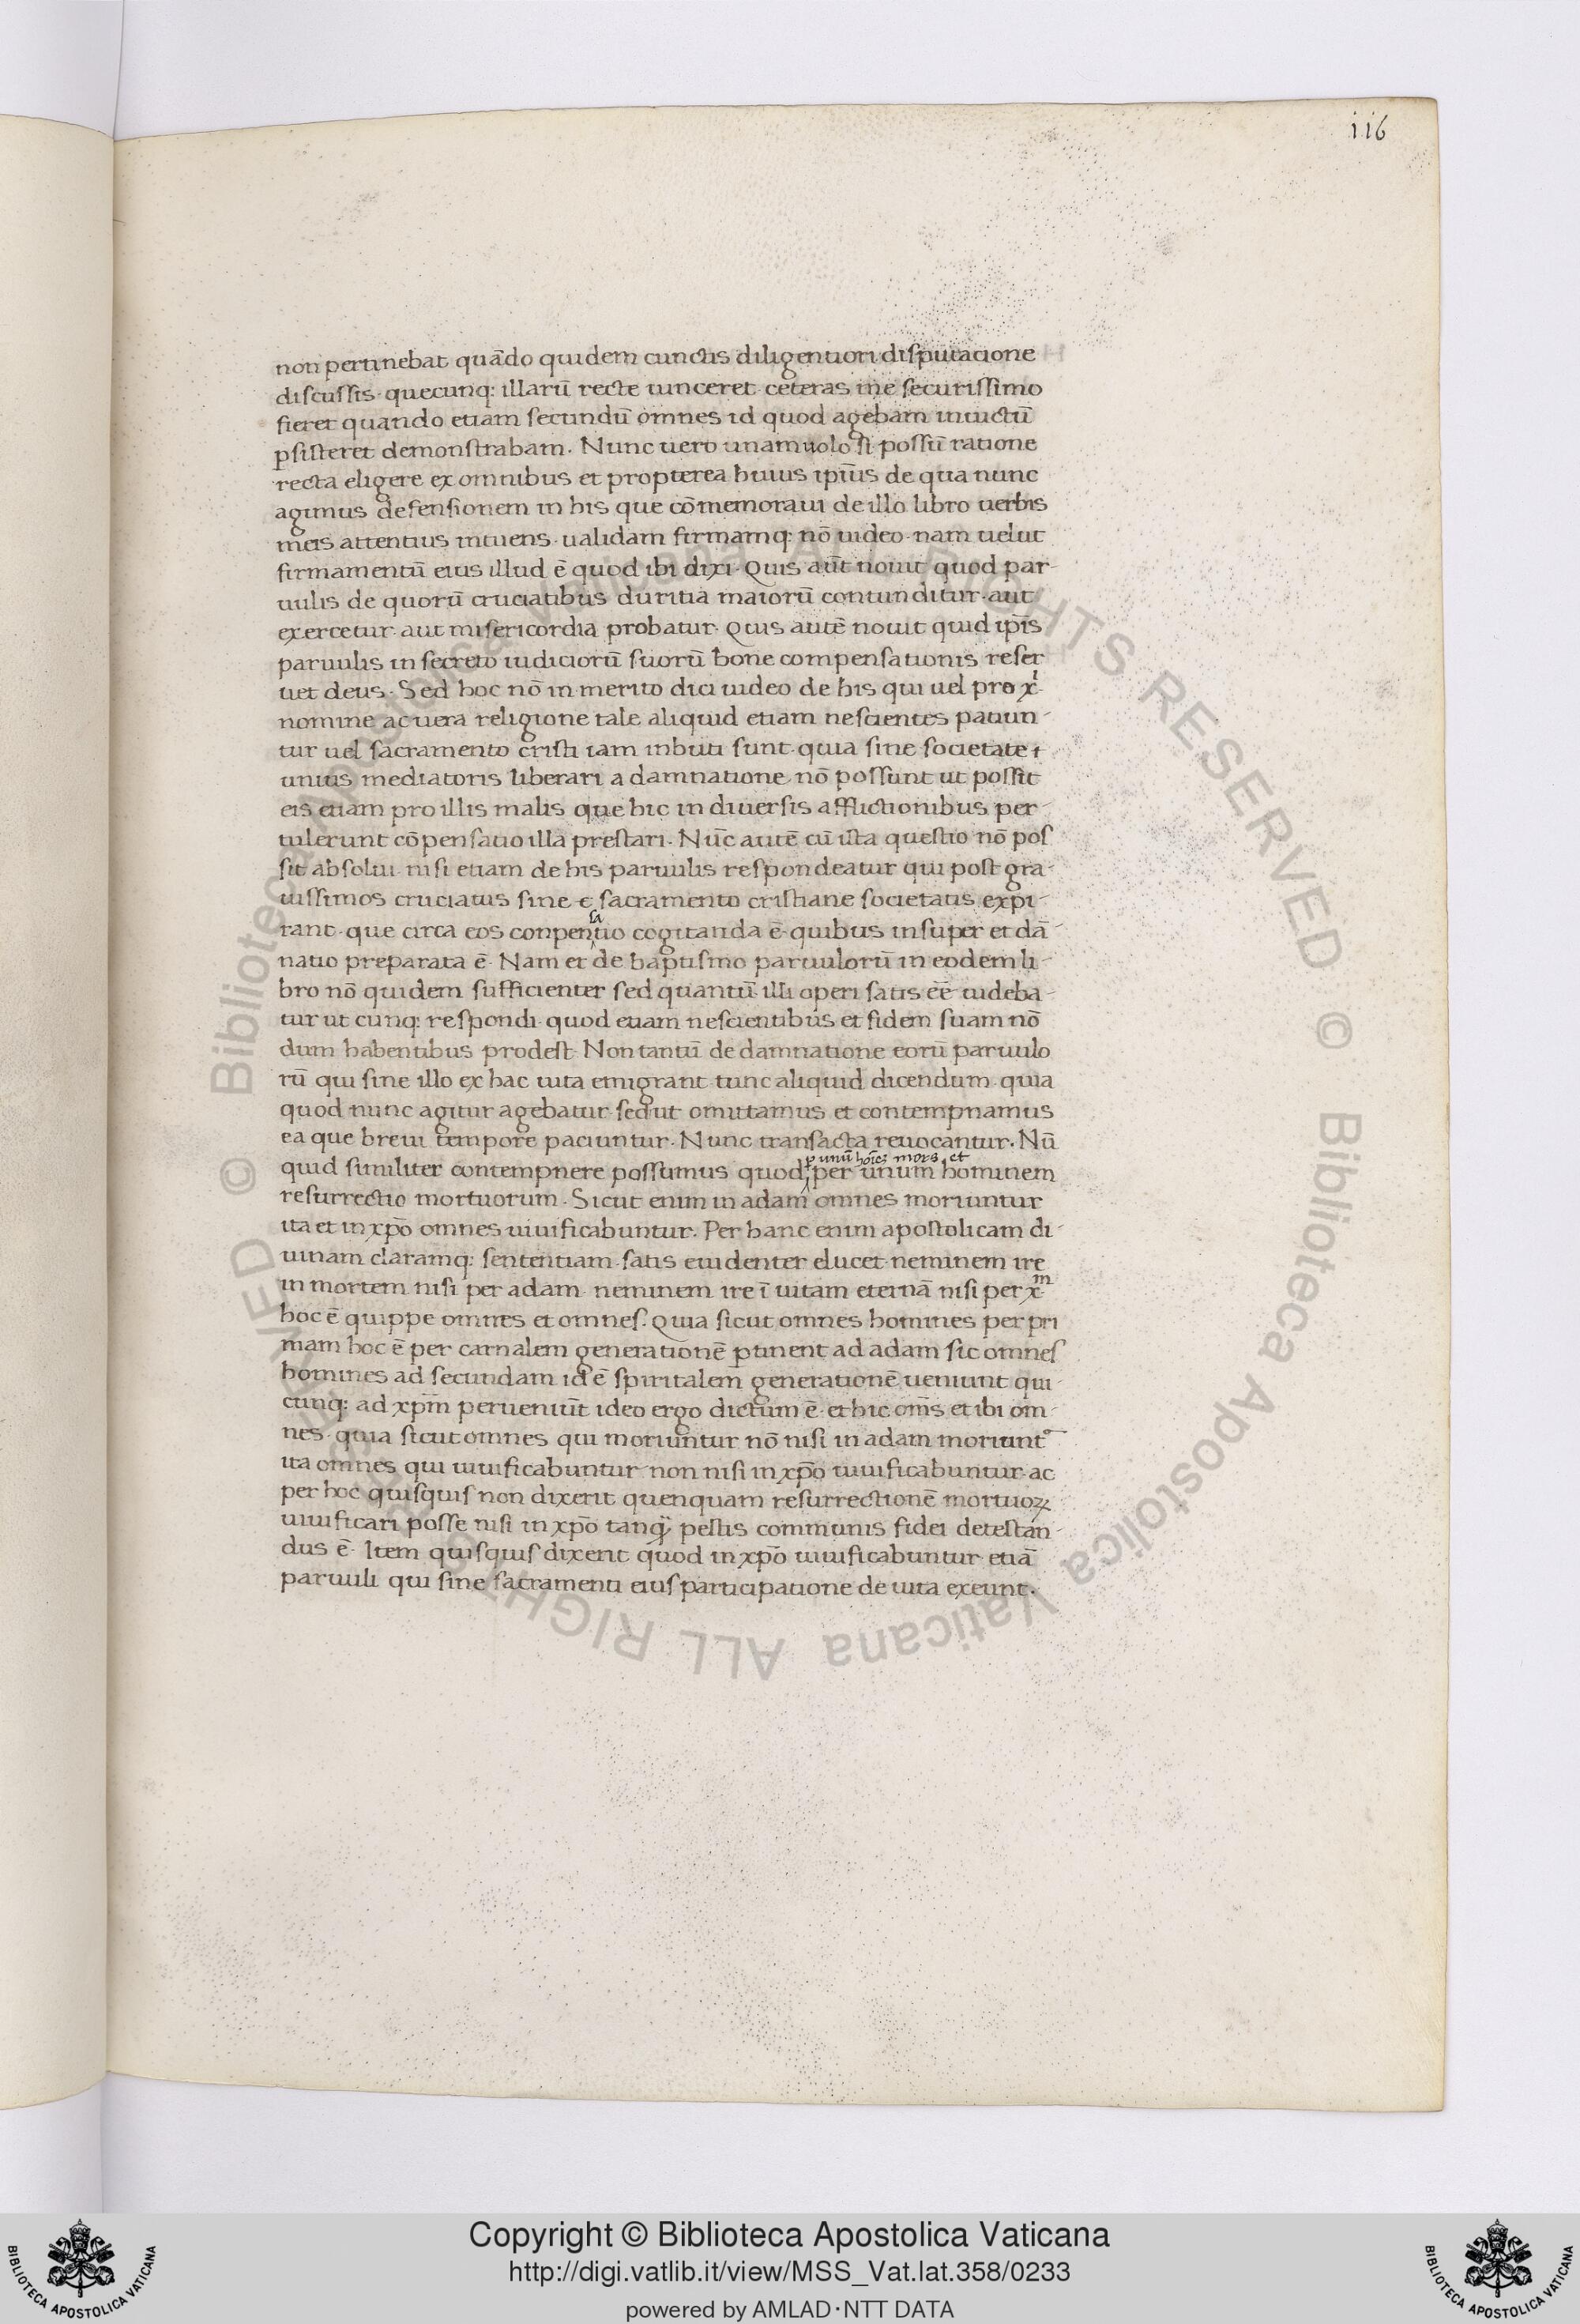 116
non pertinebat quādo quidem cunctis diligentiori disputacione
discussis · quecunq: illarū recte iunceret ceteras me securissimo
fieret quando etiam secundū omnes id quod agebam inuictū
psisteret demonstrabam. Nunc uero unam uolo si possū ratione
recta eligere ex omnibus et propterea huius ipīus de qua nunc
agimus defensionem in his que cōmemoraui de illo libro uerbis
meis attentius intuens · ualidam firmamq: nō uideo · nam uelut
firmamentū eius illud ē quod ibi dixi · Quis aūt nouit quod par-
uulis de quorū cruciatibus duritia maiorū contunditur · aut
exercetur · aut misericordia probatur · Quis autē nouit quid ipīs
paruulis in secreto iudiciorū suorū bone compensationis reser
uet deus · Sed hoc nō in merito dici uideo de his qui uel pro xⁱ·
nomine ac uera religione tale aliquid etiam nescientes patiun-
tur uel sacramento cristi iam inbuti sunt · quia sine societate
unius mediatoris liberari a damnatione nō possunt ut possit
eis etiam pro illis malis que hic in diuersis afflictionibus per-
tulerunt cōpensatio illa prestari. Nūc autē cū ista questio nō pos
sit absolui · nisi etiam de his paruulis respondeatur qui post gra-
uissimos cruciatus sine e sacramento cristiane societatis expi-
rant · que circa eos conpen
sa
tio cogitanda ē · quibus insuper et dā-
natio preparata ē · Nam et de baptismo paruulorū in eodem li-
bro nō quidem sufficienter sed quantū illi operi satis eē uideba-
tur ut cunq: respondi · quod etiam nescientibus et fidem suam nō
dum habentibus prodest · Non tantū de damnatione eorū paruulo
rū qui sine illo ex hac uita emigrant tunc aliquid dicendum · quia
quod nunc agitur agebatur · sed ut omittamus et contempnamus
ea que breui tempore paciuntur. Nunc transacta reuocantur. Nū
p unū hoīēȝ mors et
quid similiter contempnere possumus quod per unum hominem
resurrectio mortuorum · Sicut enim in adam omnes moriuntur
ita et in xpō omnes uiuificabuntur. Per hanc enim apostolicam di-
uinam claramq: sententiam · satis euidenter elucet neminem ire
in mortem nisi per adam · neminem ire ī uitam eternā nisi per xᵐ·
hoc ē quippe omnes et omnes. Quia sicut omnes homines per pri
mam hoc ē per carnalem generationē ptinent ad adam sic omnes
homines ad secundam id ē spiritalem generationē ueniunt qui-
cunq: ad xpm̄ perueniūt ideo ergo dictum ē · et hic om̄s et ibi om-
nes · quia sicut omnes qui moriuntur nō nisi in adam moriunt᷒
ita omnes qui uiuificabuntur non nisi in xpō uiuificabuntur · ac
per hoc quisquis non dixerit quenquam resurrectionē mortuoꝝ
uiuificari posse nisi in xpō tanq̄ pestis communis fidei detestan-
dus ē · Item quisquis dixerit quod in xpō uiuificabuntur etiā
paruuli qui sine sacramenti eius participatione de uita exeunt.
Copyright © Biblioteca Apostolica Vaticana
http://digi.vatlib.it/view/MSS_Vat.lat.358/0233
powered by AMLAD·NTT DATA